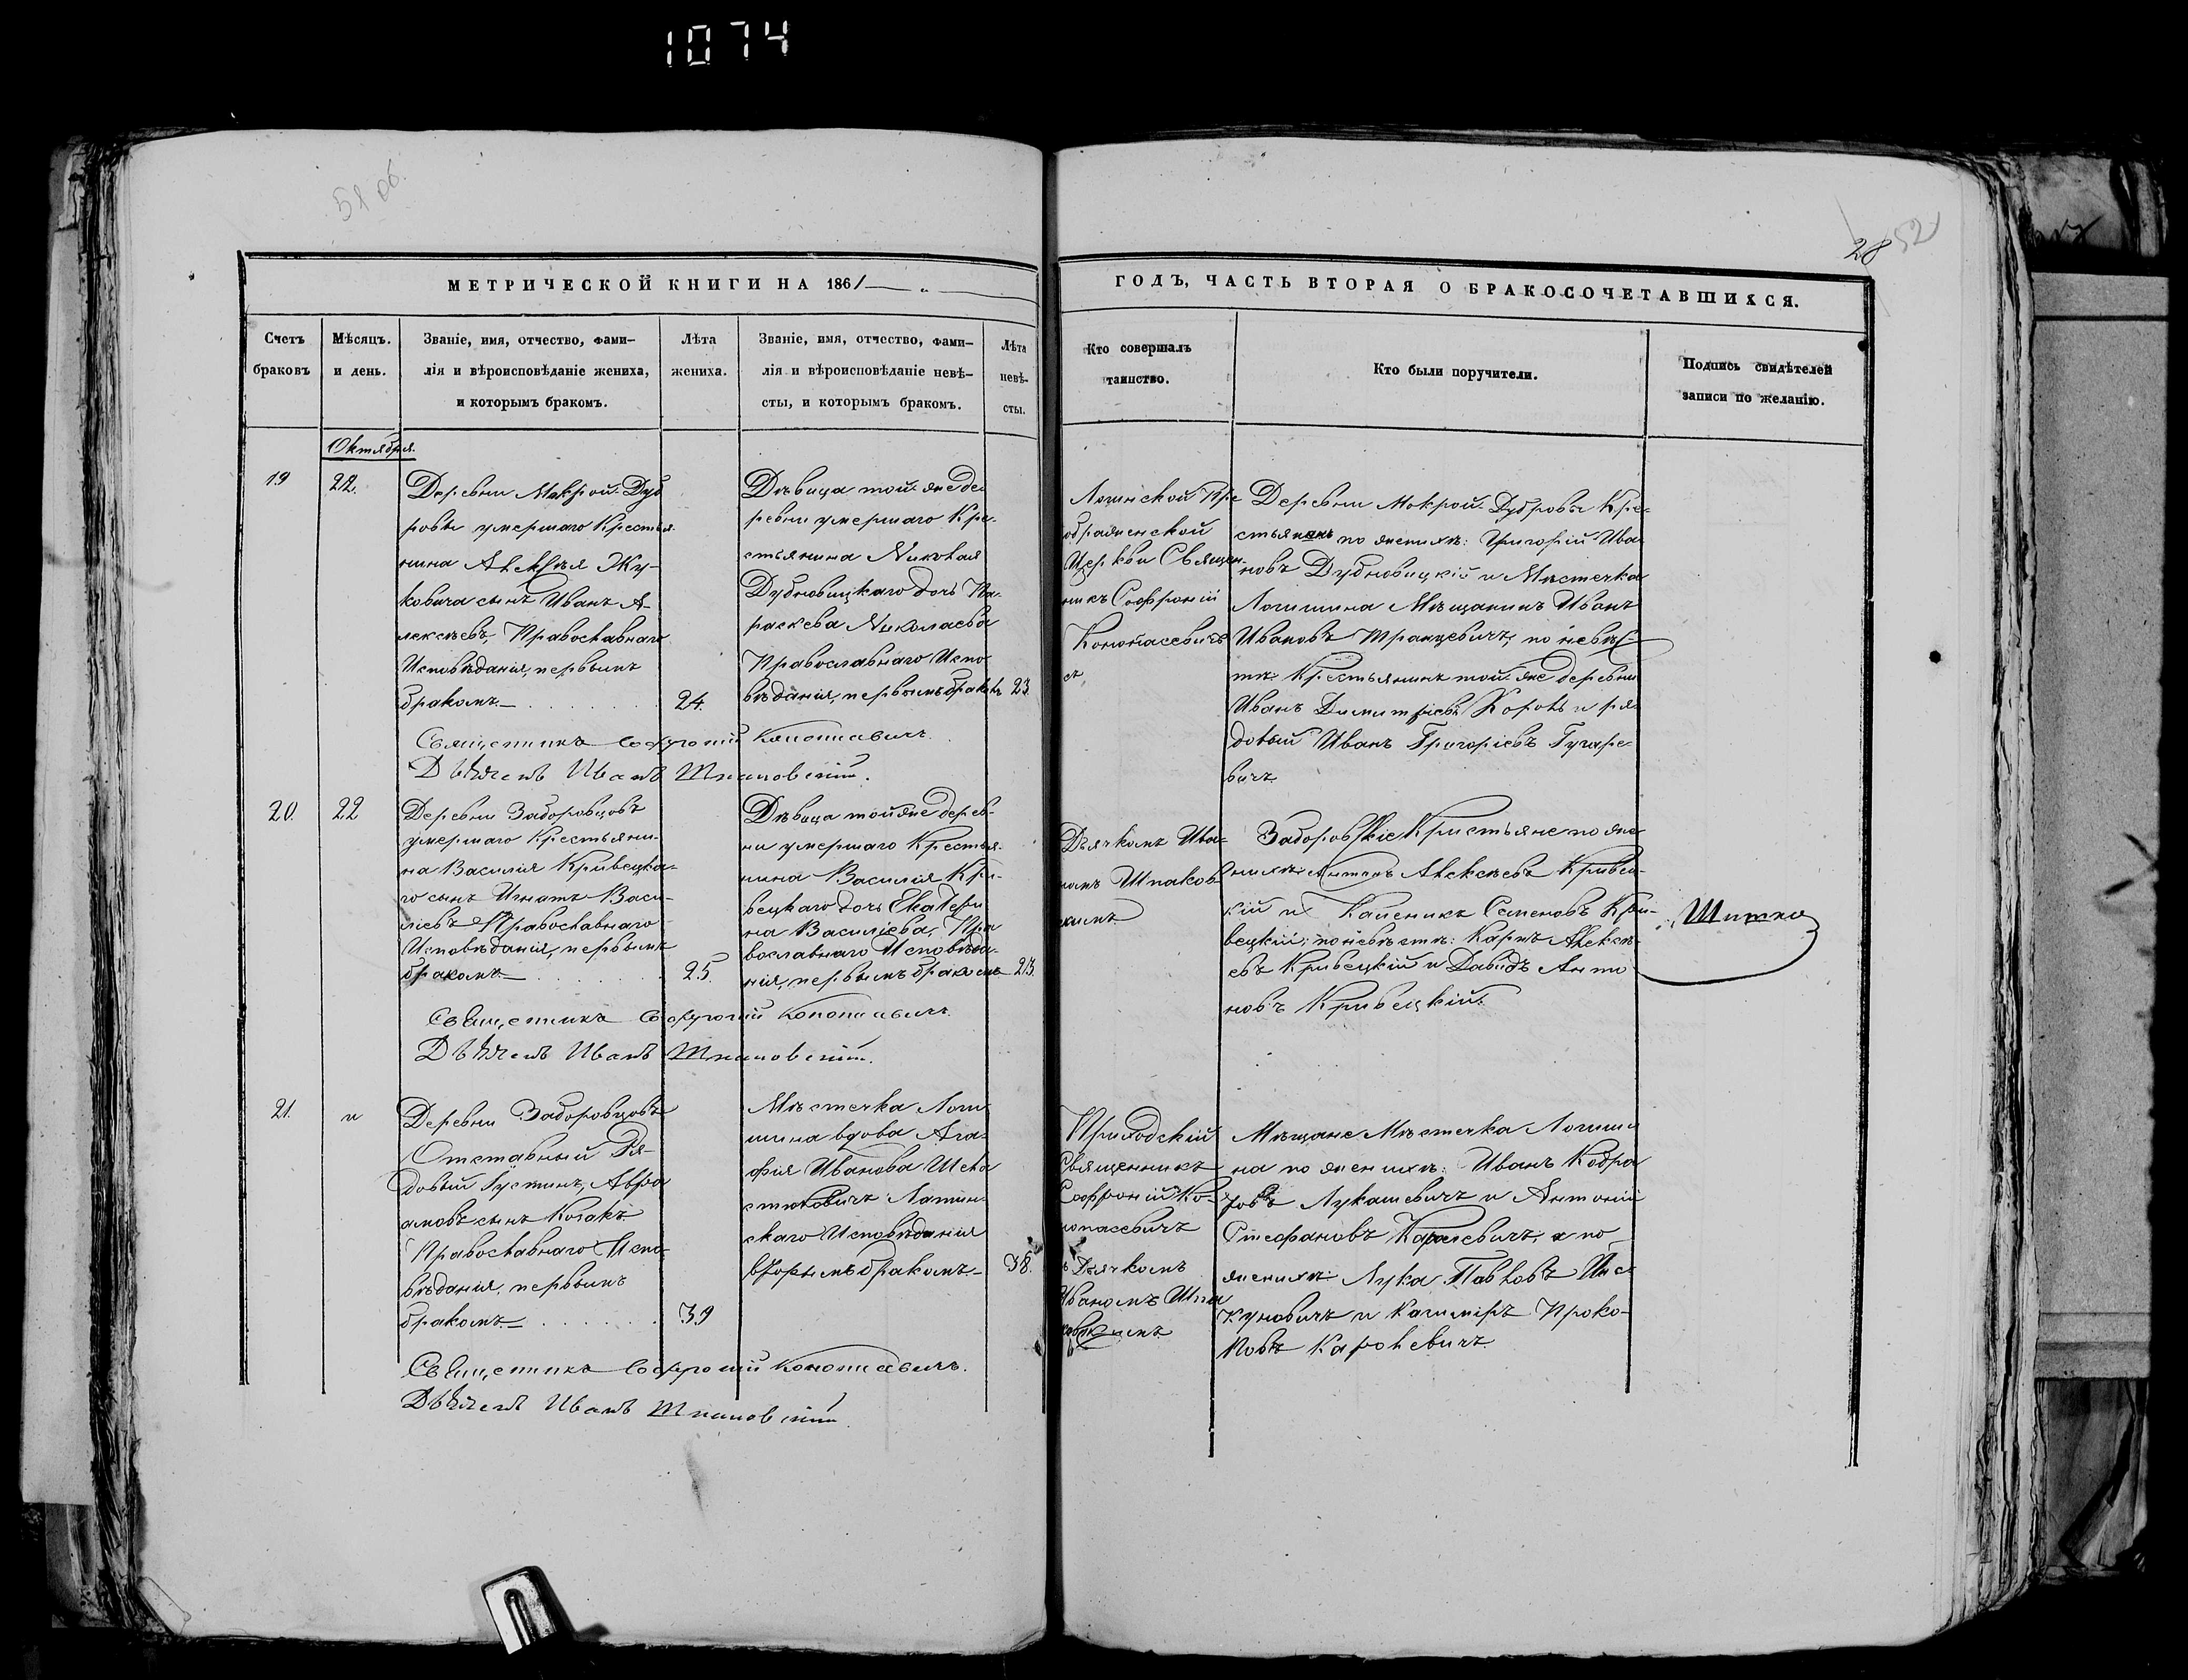 1074
51 об.
28
52
МЕТРИЧЕСКОЙ КНИГИ НА 1861
ГОДЪ, ЧАСТЬ ВТОРАЯ О БРАКОСОЧЕТАВШИХСЯ.
Счетъ
браковъ
Мѣсяцъ.
и день.
Званіе, имя, отчество, фами-
лія и вѣроисповѣданіе жениха,
и которымъ бракомъ.
Лѣта
жениха.
Званіе, имя, отчество, фами-
лія и вѣроисповѣданіе невѣ-
сты, и которымъ бракомъ.
Лѣта
невѣ-
сты.
Кто совершалъ
таинство.
Кто были поручители.
Подпись свидѣтелей
записи по желанію.
Октября.
19
22.
Деревни Мокрой-Дуб
ровы умершаго Крестья-
нина Алексѣя Жу-
ковича сынъ Иванъ А-
лексѣевъ, Православнаго
Исповѣданія, первымъ
бракомъ.
24.
Дѣвица той-же де-
ревни умершаго Кре-
стьянина Николая
Дубновицкаго дочь Па-
раскева Николаева
Православнаго Испо-
вѣданія, первымъ бракомъ
23.
Логинской Пре
ображенской
Церкви Священ-
никъ Софроній
Конопасевичъ
съ
Деревни Мокрой-Дубровы Кре-
стьянинъ по женихѣ: Григорій Ива-
новъ Дубновицкій и Мѣстечка
Логишина Мѣщанинъ Иванъ
Ивановъ Транцевичъ, по невѣс-
тѣ: Крестьянинъ той-же деревни
Иванъ Димитріевъ Король и ря-
довый Иванъ Григорьевъ Гучаре-
вичъ
Священникъ Софроній Конопасевичъ.
Дьячекъ Иванъ Шпаковскій.
20.
22
Деревни Задоровцовъ
умершаго Крестьяни-
на Василія Кривецка-
го сынъ Игнатъ Васи-
ліевъ Православнаго
Исповѣданія, первымъ
бракомъ
25.
Дѣвица той же дерев-
ни умершаго Крестья-
нина Василія Кри-
вецкаго дочь Екатери
на Василіева, Пра
вославнаго Исповѣда-
нія, первымъ бракомъ
23.
Дьячкомъ Ива-
номъ Шпаков-
скимъ
Задоровскіе Крестьяне по же-
нихѣ: Антонъ Алексѣевъ Кривец-
кій и Каленикъ Семеновъ Кри-
вецкій; по невѣстѣ: Карпъ Алексѣ-
евъ Кривецкій и Давидъ Анто-
новъ Кривецкій.
Священникъ Софроній Конопасевичъ.
Дьячекъ Иванъ Шпаковскій.
21.
и
Деревни Задоровцовъ
Отставный Ря-
довый Густинъ, Авра
амовъ сынъ Козакъ
Православнаго Испо-
вѣданія, первымъ
бракомъ
39
Мѣстечка Логи-
шина вдова Ага-
фія Иванова
Латин-
скаго Исповѣданія
вторымъ бракомъ.
38.
Приходскій
Священникъ
Софроній Ко-
нопасевичъ
съ Дьячкомъ
Иваномъ Шпа
ковскимъ
Мѣщане Мѣстечка Логиши-
на по женихѣ: Иванъ
Лукашевичъ и Антоній
Стефановъ Каролевичъ, а по
женихѣ: Лука Павловъ
и Казиміръ Проко-
повъ Каролевичъ
Священникъ Софроній Конопасевичъ.
Дьячекъ Иванъ Шпаковскій.